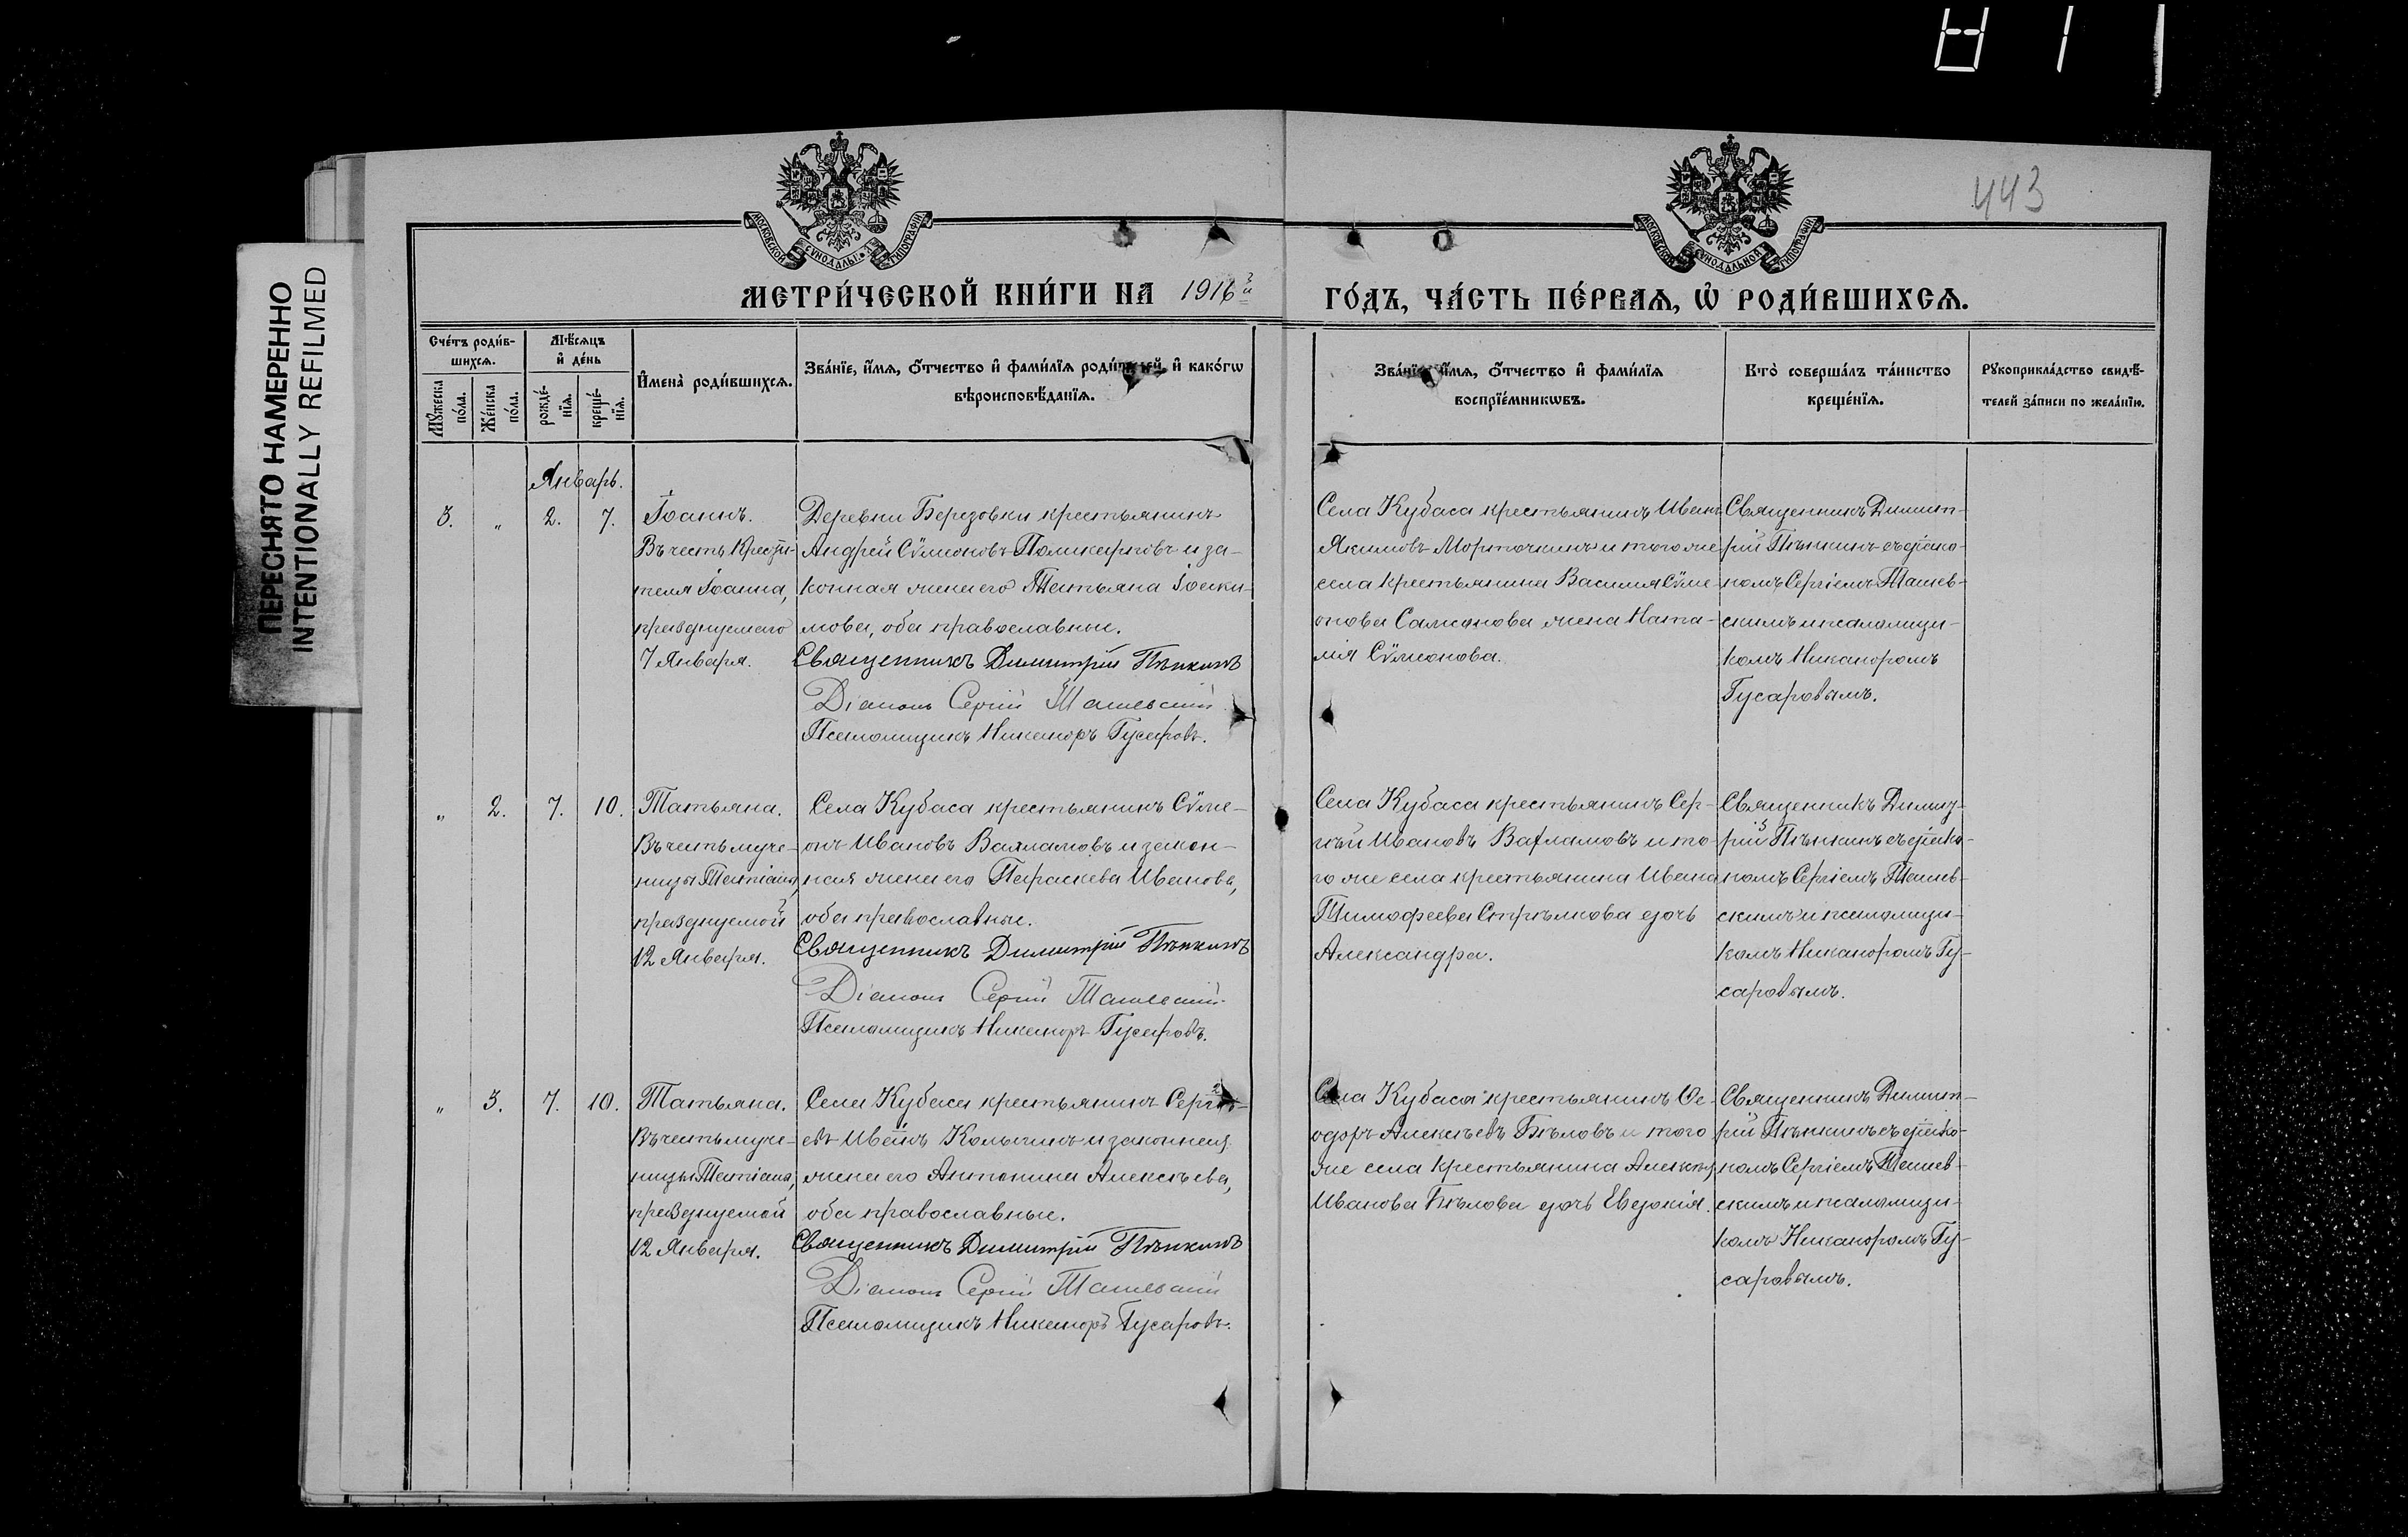 ПЕРЕСНЯТО НАМЕРЕННО
INTENTIONALLY REFILMED
443
МОСКОВСКОЙ СѴНОДАЛЬНОЙ ТИПОГРАФІИ
МОСКОВСКОЙ СѴНОДАЛЬНОЙ ТИПОГРАФІИ
МЕТРИ́ЧЕСКОЙ КНИ́ГИ НА 1916й
ГО́ДЪ, ЧА́СТЬ ПЕ́РВАѦ, Ѡ҆ РОДИ́ВШИХСѦ.
Сче́тъ роди́в-
шихсѧ.
Мꙋ́жеска
по́ла.
Же́нска
по́ла.
Мѣ́сѧцъ
и҆ де́нь
рожде́-
нїѧ.
креще́-
нїѧ.
И҆мена̀ роди́вшихсѧ.
Зва́нїе, и҆́мѧ, ѻ҆́тчество и҆ фами́лїѧ роди́телей, и҆ како́гѡ
вѣроисповѣ́данїѧ.
Зва́нїе, и҆́мѧ, ѻ҆́тчество и҆ фами́лїѧ
воспрїе́мникѡвъ.
Кто̀ соверша́лъ та́инство
креще́нїѧ.
Рꙋкоприкла́дство свидѣ́-
телей за́писи по жела́нїю.
Январь.
3. „ 2. 7.
Іоаннъ.
Въ честь Крести-
теля Іоанна,
празднуемаго
7 Января.
Деревни Березовки крестьянинъ
Андрей Сѵмеоновъ Поликарповъ и за-
конная жена его Татьяна Іоаки-
мова, оба православные.
Священникъ Димитрій Пѣнкинъ
Діаконъ Сергій Ташевскій
Псаломщикъ Никаноръ Гусаровъ.
Села Кубаса крестьянинъ Иванъ
Якимовъ Морточкинъ и того же
села крестьянина Василія Сѵме-
онова Самсонова жена Ната-
лія Сѵмеонова.
Священникъ Димит-
рій Пѣнкинъ съ діако-
номъ Сергіемъ Ташев-
скимъ и псаломщи-
комъ Никаноромъ
Гусаровымъ.
„ 2. 7. 10.
Татьяна.
Въ честь муче-
ницы Татіаны,
празднуемой
12 Января.
Села Кубаса крестьянинъ Сѵме-
онъ Ивановъ Варламовъ и закон-
ная жена его Параскева Иванова,
оба православные.
Священникъ Димитрій Пѣнкинъ
Діаконъ Сергій Ташевскій
Псаломщикъ Никаноръ Гусаровъ.
Села Кубаса крестьянинъ Сер-
гѣй Ивановъ Варламовъ и то-
го же села крестьянина Ивана
Тимофеева Стрѣлкова дочь
Александра.
Священникъ Димит-
рій Пѣнкинъ съ діако-
номъ Сергіемъ Ташев-
скимъ и псаломщи-
комъ Никаноромъ Гу-
саровымъ.
„ 3. 7. 10.
Татьяна.
Въ честь муче-
ницы Татіаны,
празднуемой
12 Января.
Села Кубаса крестьянинъ
Колычинъ и законная
жена его Антонина Алексѣева,
оба православные.
Священникъ Димитрій Пѣнкинъ
Діаконъ Сергій Ташевскій
Псаломщикъ Никаноръ Гусаровъ.
Села Кубаса крестьянинъ Ѳе-
одоръ Алексѣевъ Бѣловъ и того
же села крестьянина Алексѣя
Иванова Бѣлова дочь Евдокія.
Священникъ Димит-
рій Пѣнкинъ съ діако-
номъ Сергіемъ Ташев-
скимъ и псаломщи-
комъ Никаноромъ Гу-
саровымъ.